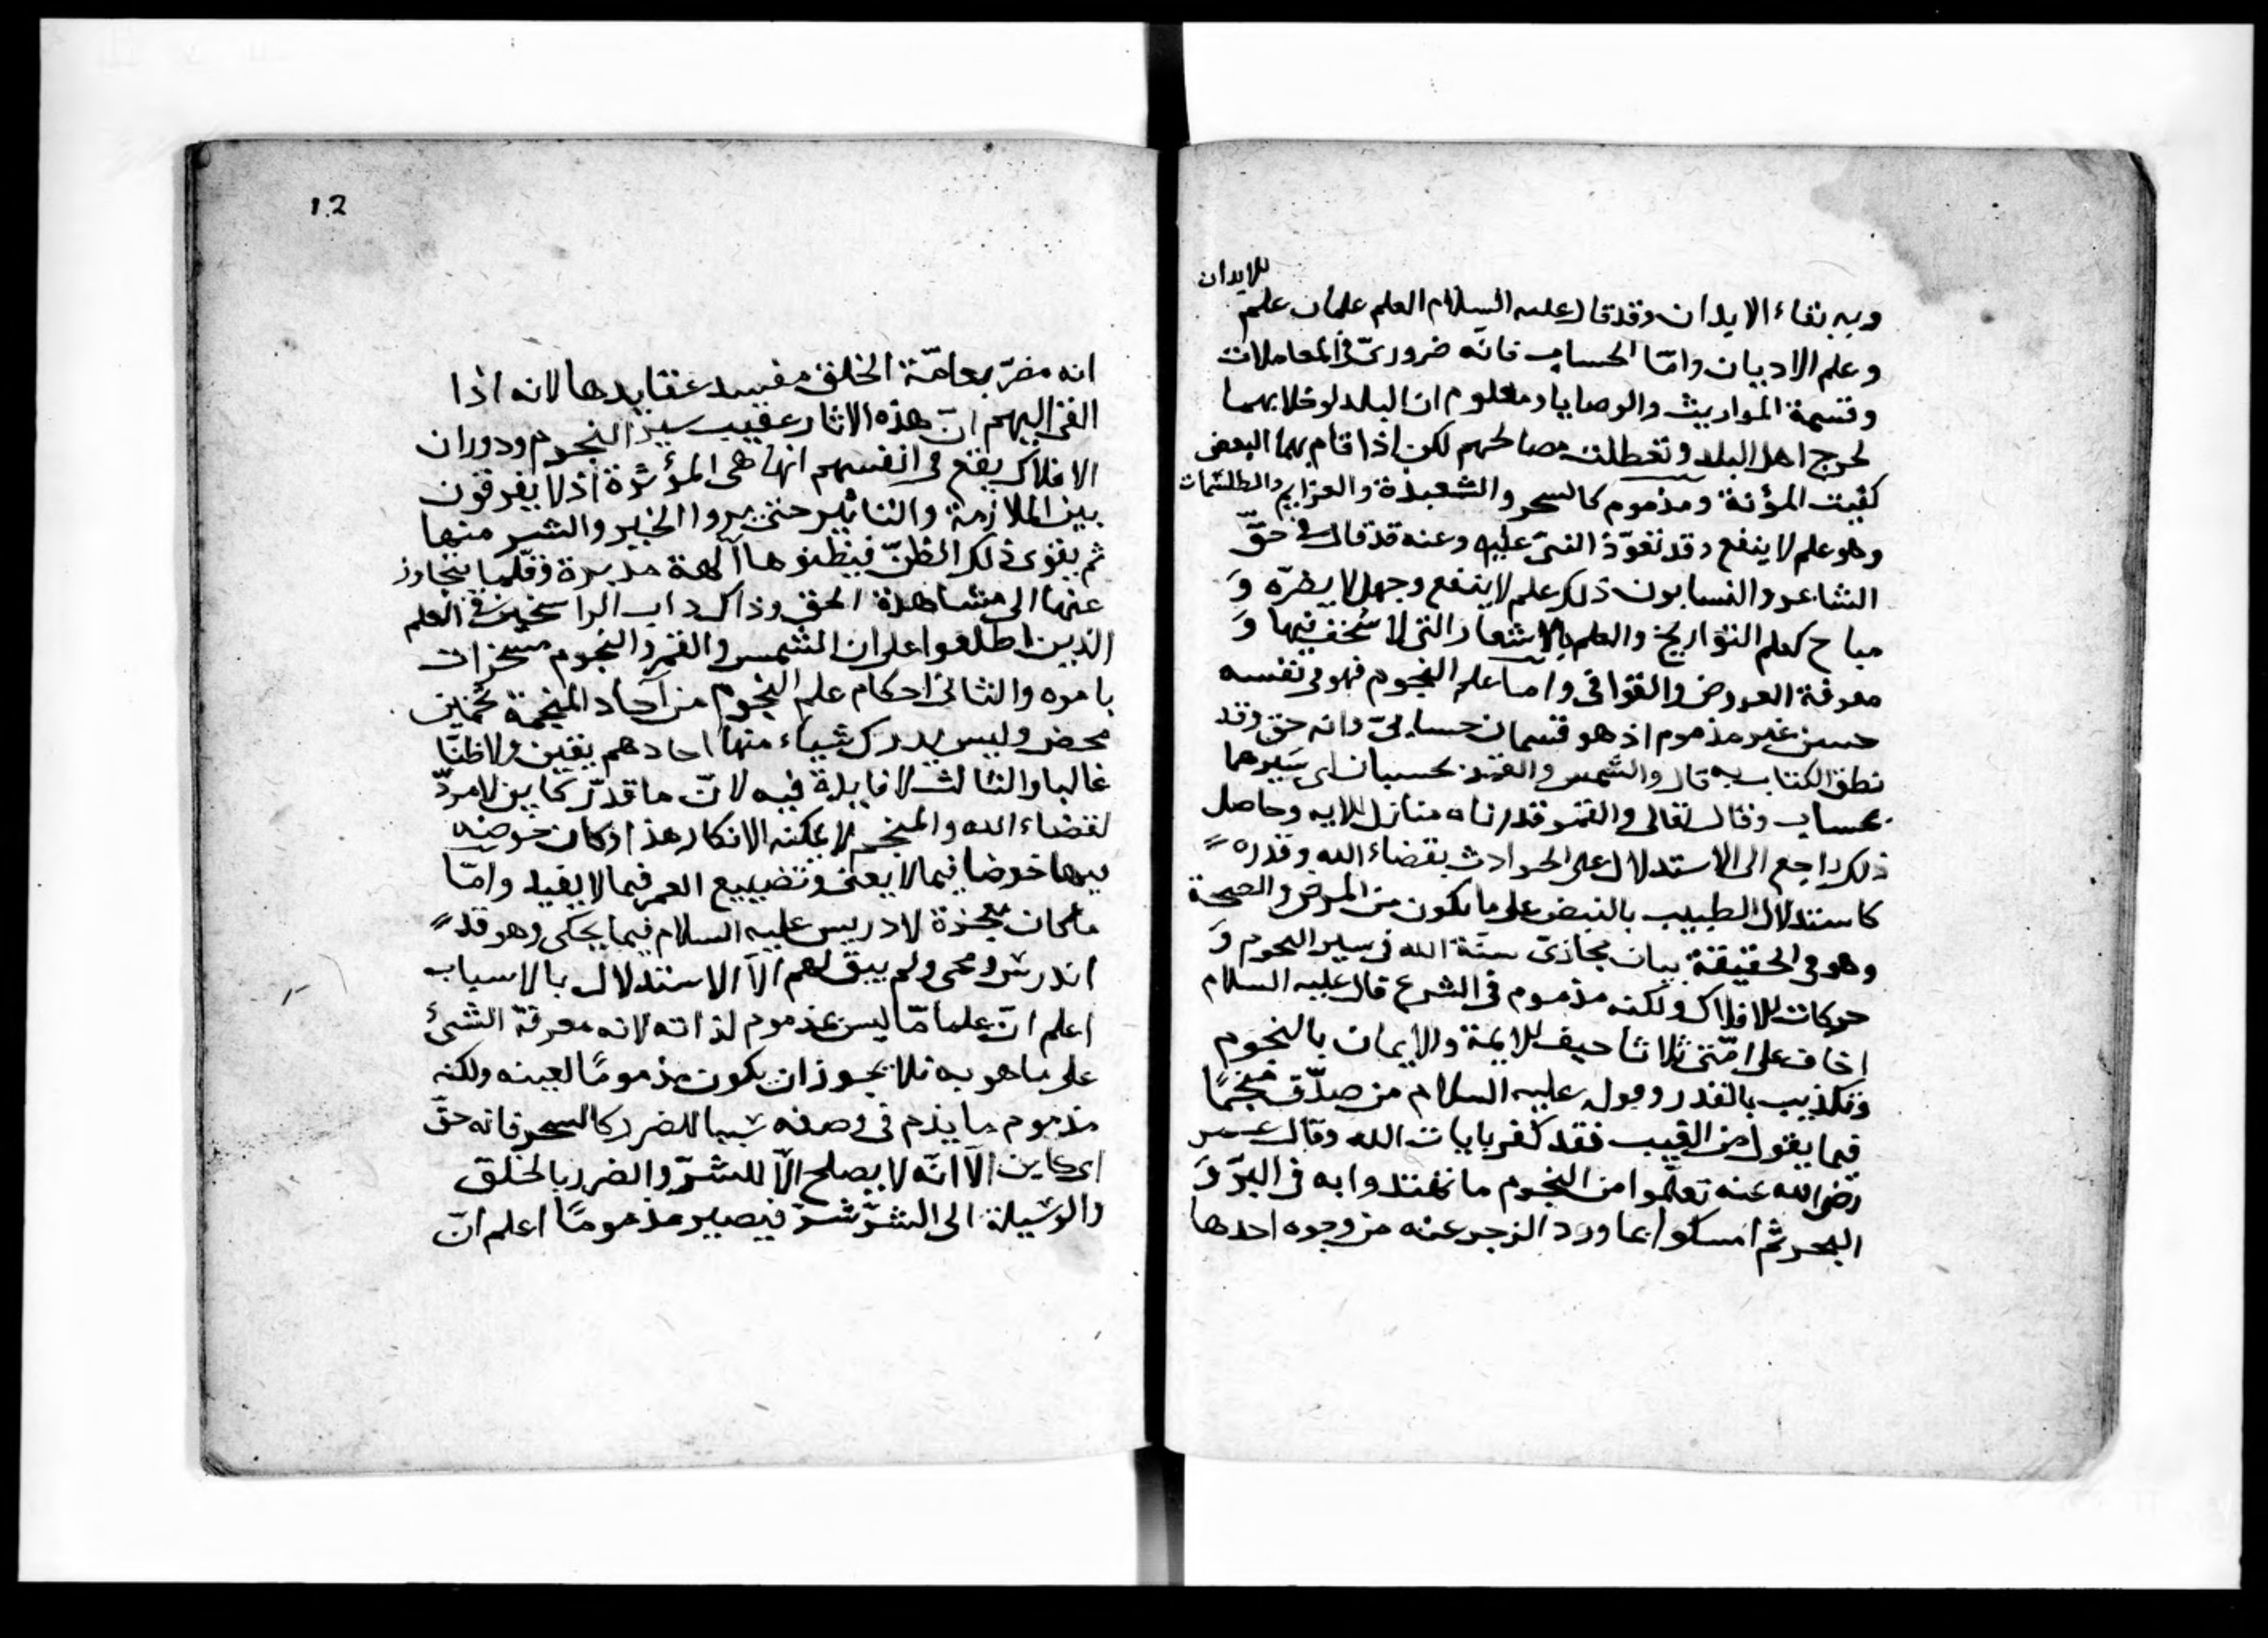 للابدان
وبه بقاء الابدان وقد قال عليه السلام العلم علمان علم
وعلم الاديان وامّا الحساب فانّه ضروريّ في المعاملات
وقسمة المواريث والوصايا ومعلوم ان البلد لو خلا بهما
لحرج اهل البلد وتعطلت مصالحهم لكن اذا قام بهما البعض
كفيت المؤنة ومذموم كالسحر والشعبذة والعزايم والطلسمات
وهو علم لا ينفع وقد تعوّذ النبيّ عليه وعنه قد قال في حقّ
الشاعر والنسابون ذلك علم لا ينفع وجهل لا يضرّه وَ
مباح كعلم التواريخ والعلم بالاشعار التي لا سُخف فيها وَ
معرفة العروض والقوافى وامّا علم النجوم فهو فى نفسه
حسن غير مذموم اذ هو قسمان حسابىّ وانه حق وقد
نطق الكتاب به قال والشمس والقمر بحسبان اى سَيرهما
بحساب وقال تعالى والقمر قدرناه منازل الايه وحاصل
ذلك راجع الى الاستدلال على الحوادث بقضاء الله وقدره
كاستدلال الطبيب بالنبض على ما يكون من المرض والصحة
وهو فى الحقيقة بيان مجازىّ سنّة الله فى سير النجوم وَ
حركات للافلاك ولكنه مذموم فى الشرع قال عليه السلام
اخاف على امّتى ثلاثا حيف للايمة والايمان بالنجوم
وتكذيب بالقدر وقول عليه السلام من صدّق منجّمًا
فيما يقول من الغيب فقد كفر بايات الله وقال عمر
رضى الله عنه تعلّموا من النجوم ما تهتدوا به فى البرّ وَ
البحر ثم امسكوا عما ورد الزجر عنه من وجوه احدها
12
انه مضرّ بعامّة الخلق مفسد عقايدها لانه اذا
القى اليهم انّ هذه الاثار عقيب سير النجوم ودوران
الافلاك يقع فى انفسهم انها هى المؤثرة اذ لا يفرقون
بين الملازمة والتاثير حتى يروا الخير والشر منها
ثم يقوى ذلك الظنّ فيظنوها آلهة مدبرة وقلّما يتجاوز
عنها الى مشاهدة الحق وذاك داب الراسخين فى العلم
الذين اطلعوا على ان الشمس والقمر والنجوم مسخرات
بامره والثانى احكام علم النجوم من آحاد المنجمة تخمين
محض وليس يدرك شياء منها احادهم بيقين ولا ظنّا
غالبا والثالث لا فايدة فيه لانّ ما قدّر كاين لا مردّ
لقضاء الله والمنجم لا يمكنه الانكار هذا اذ كان خوضه
فيها خوضا فيما لا يعنى وتضييع العمر فيما لا يفيد وامّا
ما كان معجزة لادريس عليه السلام فيما يحكى وهو قد
اندرس ومحى ولم يبق لهم الّا الاستدلال بالاسباب
اعلم انّ علما مّا ليس بمذموم لذاته لانه معرفة الشئ
على ما هو به فلا يجوز ان يكون مذمومًا لعينه ولكنه
مذموم ما يذم فى وصفه سببا للضرر كالسحر فانه حقّ
اى كاين الّا انّه لا يصلح الّا للشرّ والضرر بالخلق
والوسيلة الى الشرّ شرّ فيصير مذمومًا اعلم انّ